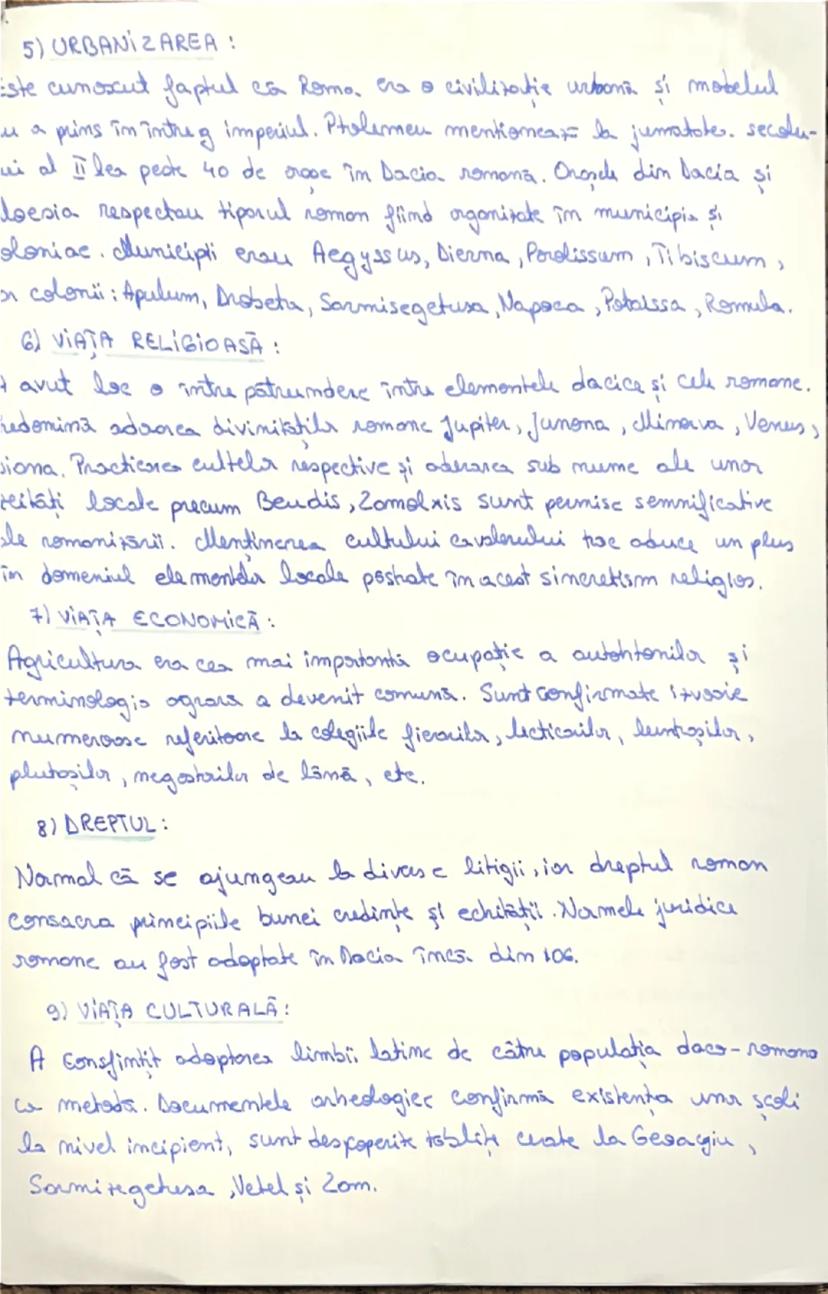 5) URBANIZAREA :
Este cunoscut faptul că Roma era o civilizație urbană și modelul
u a prins în întreg imperiul. Ptolemeu mentionează la jumatate. secolu-
ui al II lea peste 40 de orașe în Dacia romană. Orașele din Dacia și
oesia respectau tiparul roman fiind organizate în municipia și
oloniae. Municipii erau Aegyssus, Dierna, Porolissum, Tibiscum,
ar colonii: Apulum, Drobeta, Sarmisegetusa, Napoca, Potaissa, Romula.
6) VIAȚA RELIGIOASĂ :
A avut loc o între pătrundere între elementele dacice și cele romane.
redomină adorarea divinităților romane Jupiter, Junona, Minerva, Venus,
iana. Practicarea cultelor respective și adorarea sub nume ale unor
zeități locale precum Bendis, Zamolxis sunt permise semnificative
ale romanizării. Mentinerea cultului cavalerului trac aduce un plus
în domeniul elementelor locale păstrate în acest sincretism religios.
7) VIAȚA ECONOMICĂ :
Agricultura era cea mai importantă ocupație a autohtonilor și
terminologia agrară a devenit comună. Sunt confirmate
numeroase referitoare la colegiile fierarilor, lecticarilor, luntrașilor,
plutașilor, negostorilor de lână, etc.
8) DREPTUL :
Normal că se ajungeau la diverse litigii, iar dreptul roman
consacra principiile bunei credințe și echității. Normele juridice
romane au fost adoptate în Dacia încă din 106.
9) VIAȚA CULTURALĂ :
A Consfințit adoptarea limbii latine de către populația daco-romana
ca metodă. Documentele arheologiec confirmă existența unor școli
la nivel incipient, sunt descoperite tăblițe cerate la Geoagiu,
Sarmizegetusa, Vetel și Zam.